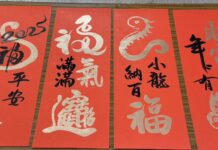 2025
福
平安
福氣
滿滿
招財進寶
小龍
納百
福
年
有